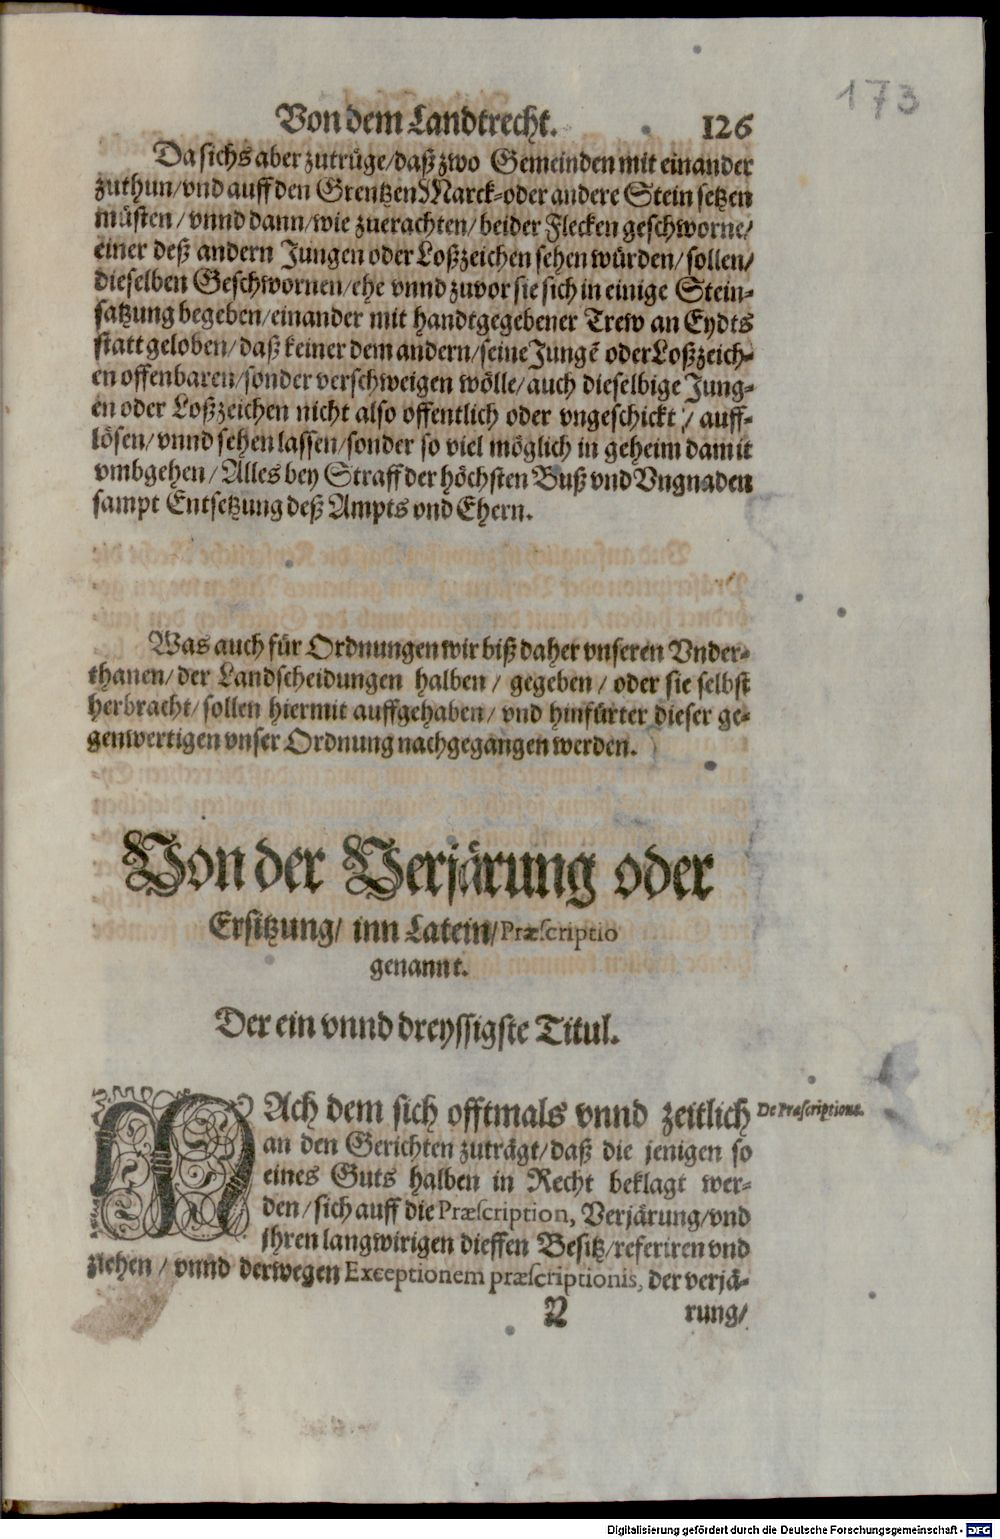 173
Von dem Landtrecht. 126
Da sichs aber zutrüge/ daß zwo Gemeinden mit einander
zuthun/ vnd auff den Grentzen Marck- oder andere Stein setzen
müsten/ vnnd dann/ wie zuerachten/ beider Flecken geschworne/
einer deß andern Jungen oder Loßzeichen sehen würden/ sollen/
dieselben Geschwornen/ ehe vnnd zuvor sie sich in einige Stein-
satzung begeben/ einander mit handtgegebener Trew an Eydts
statt geloben/ daß keiner dem andern/ seine Jungē oder Loßzeich-
en offenbaren/ sonder verschweigen wölle/ auch dieselbige Jung-
en oder Loßzeichen nicht also offentlich oder vngeschickt/ auff-
lösen/ vnnd sehen lassen/ sonder so viel möglich in geheim damit
vmbgehen/ Alles bey Straff der höchsten Buß vnd Vngnaden
sampt Entsetzung deß Ampts vnd Ehern.
Was auch für Ordnungen wir biß daher vnseren Vnder-
thanen/ der Landscheidungen halben/ gegeben/ oder sie selbst
herbracht/ sollen hiermit auffgehaben/ vnd hinfürter dieser ge-
genwertigen vnser Ordnung nachgegangen werden.
Von der Verjärung oder
Ersitzung/ inn Latein/ Præscriptio
genannt.
Der ein vnnd dreyssigste Titul.
NAch dem sich offtmals vnnd zeitlich De Præscriptione.
an den Gerichten zuträgt/ daß die jenigen so
eines Guts halben in Recht beklagt wer-
den/ sich auff die Præscription, Verjärung/ vnd
jhren langwirigen dieffen Besitz/ referiren vnd
ziehen/ vnnd derwegen Exceptionem præscriptionis, der verjä-
N rung/
Digitalisierung gefördert durch die Deutsche Forschungsgemeinschaft - DFG